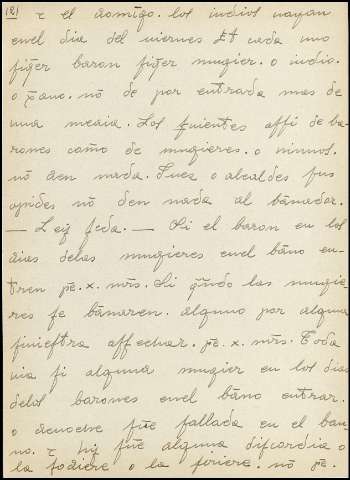 (2) τ el domīgo. los iudios uayan
enel dia del uiernes Et cada uno
siq̄er baron siq̄er mugier. o iudio.
o x̄ano. nō de por entrada mas de
una meaia. Los siruientes assi de ba-
rones como de mugieres. o ninnos.
nō den nada. Juez o alcaldes sus
apides nō den nada al bānador.
— Leiẏ seda. — Si el baron en los
dias delas mugieres enel bāno en-
tren pe. x. mrs. Si q̄ndo las mugie-
res se bānaren. alguno por alguna
finiestra assechar. pe. x. mrs. Toda
uia si alguna mugier en los dias
delos barones enel bāno entrar.
o denoche fūe fallada en el ban-
no. τ hẏ fūe alguna discordia o
la fodiere o la firiere. nō pe.